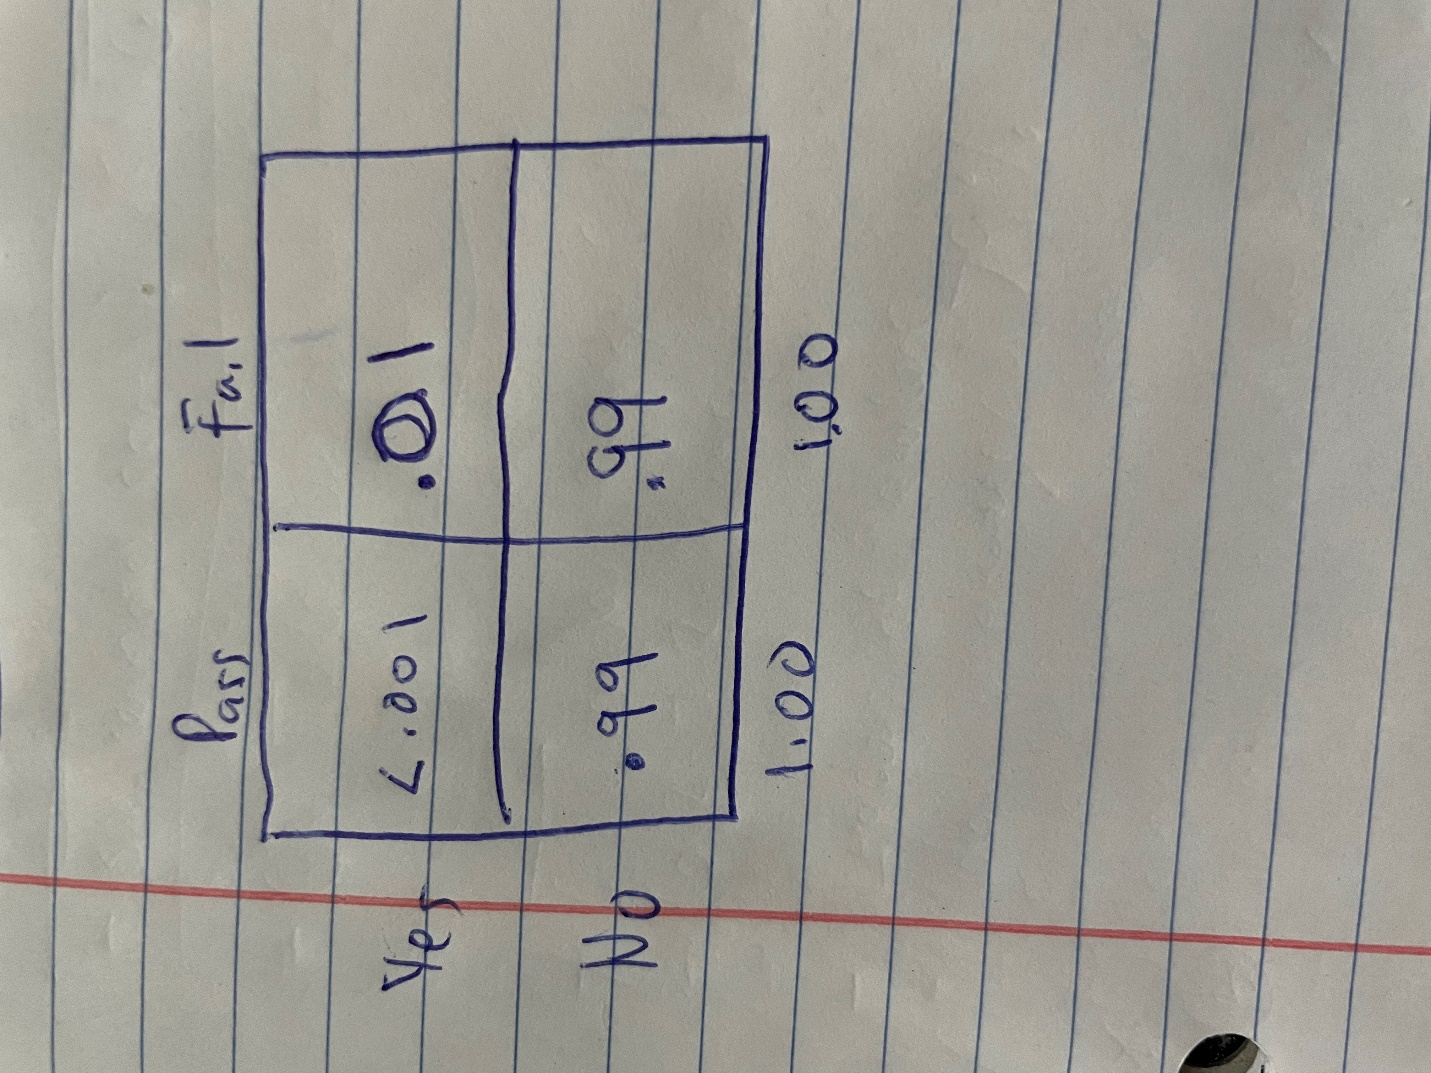 Pass Fail
Yes <.001 .01
No .99 .99
1.00 1.00